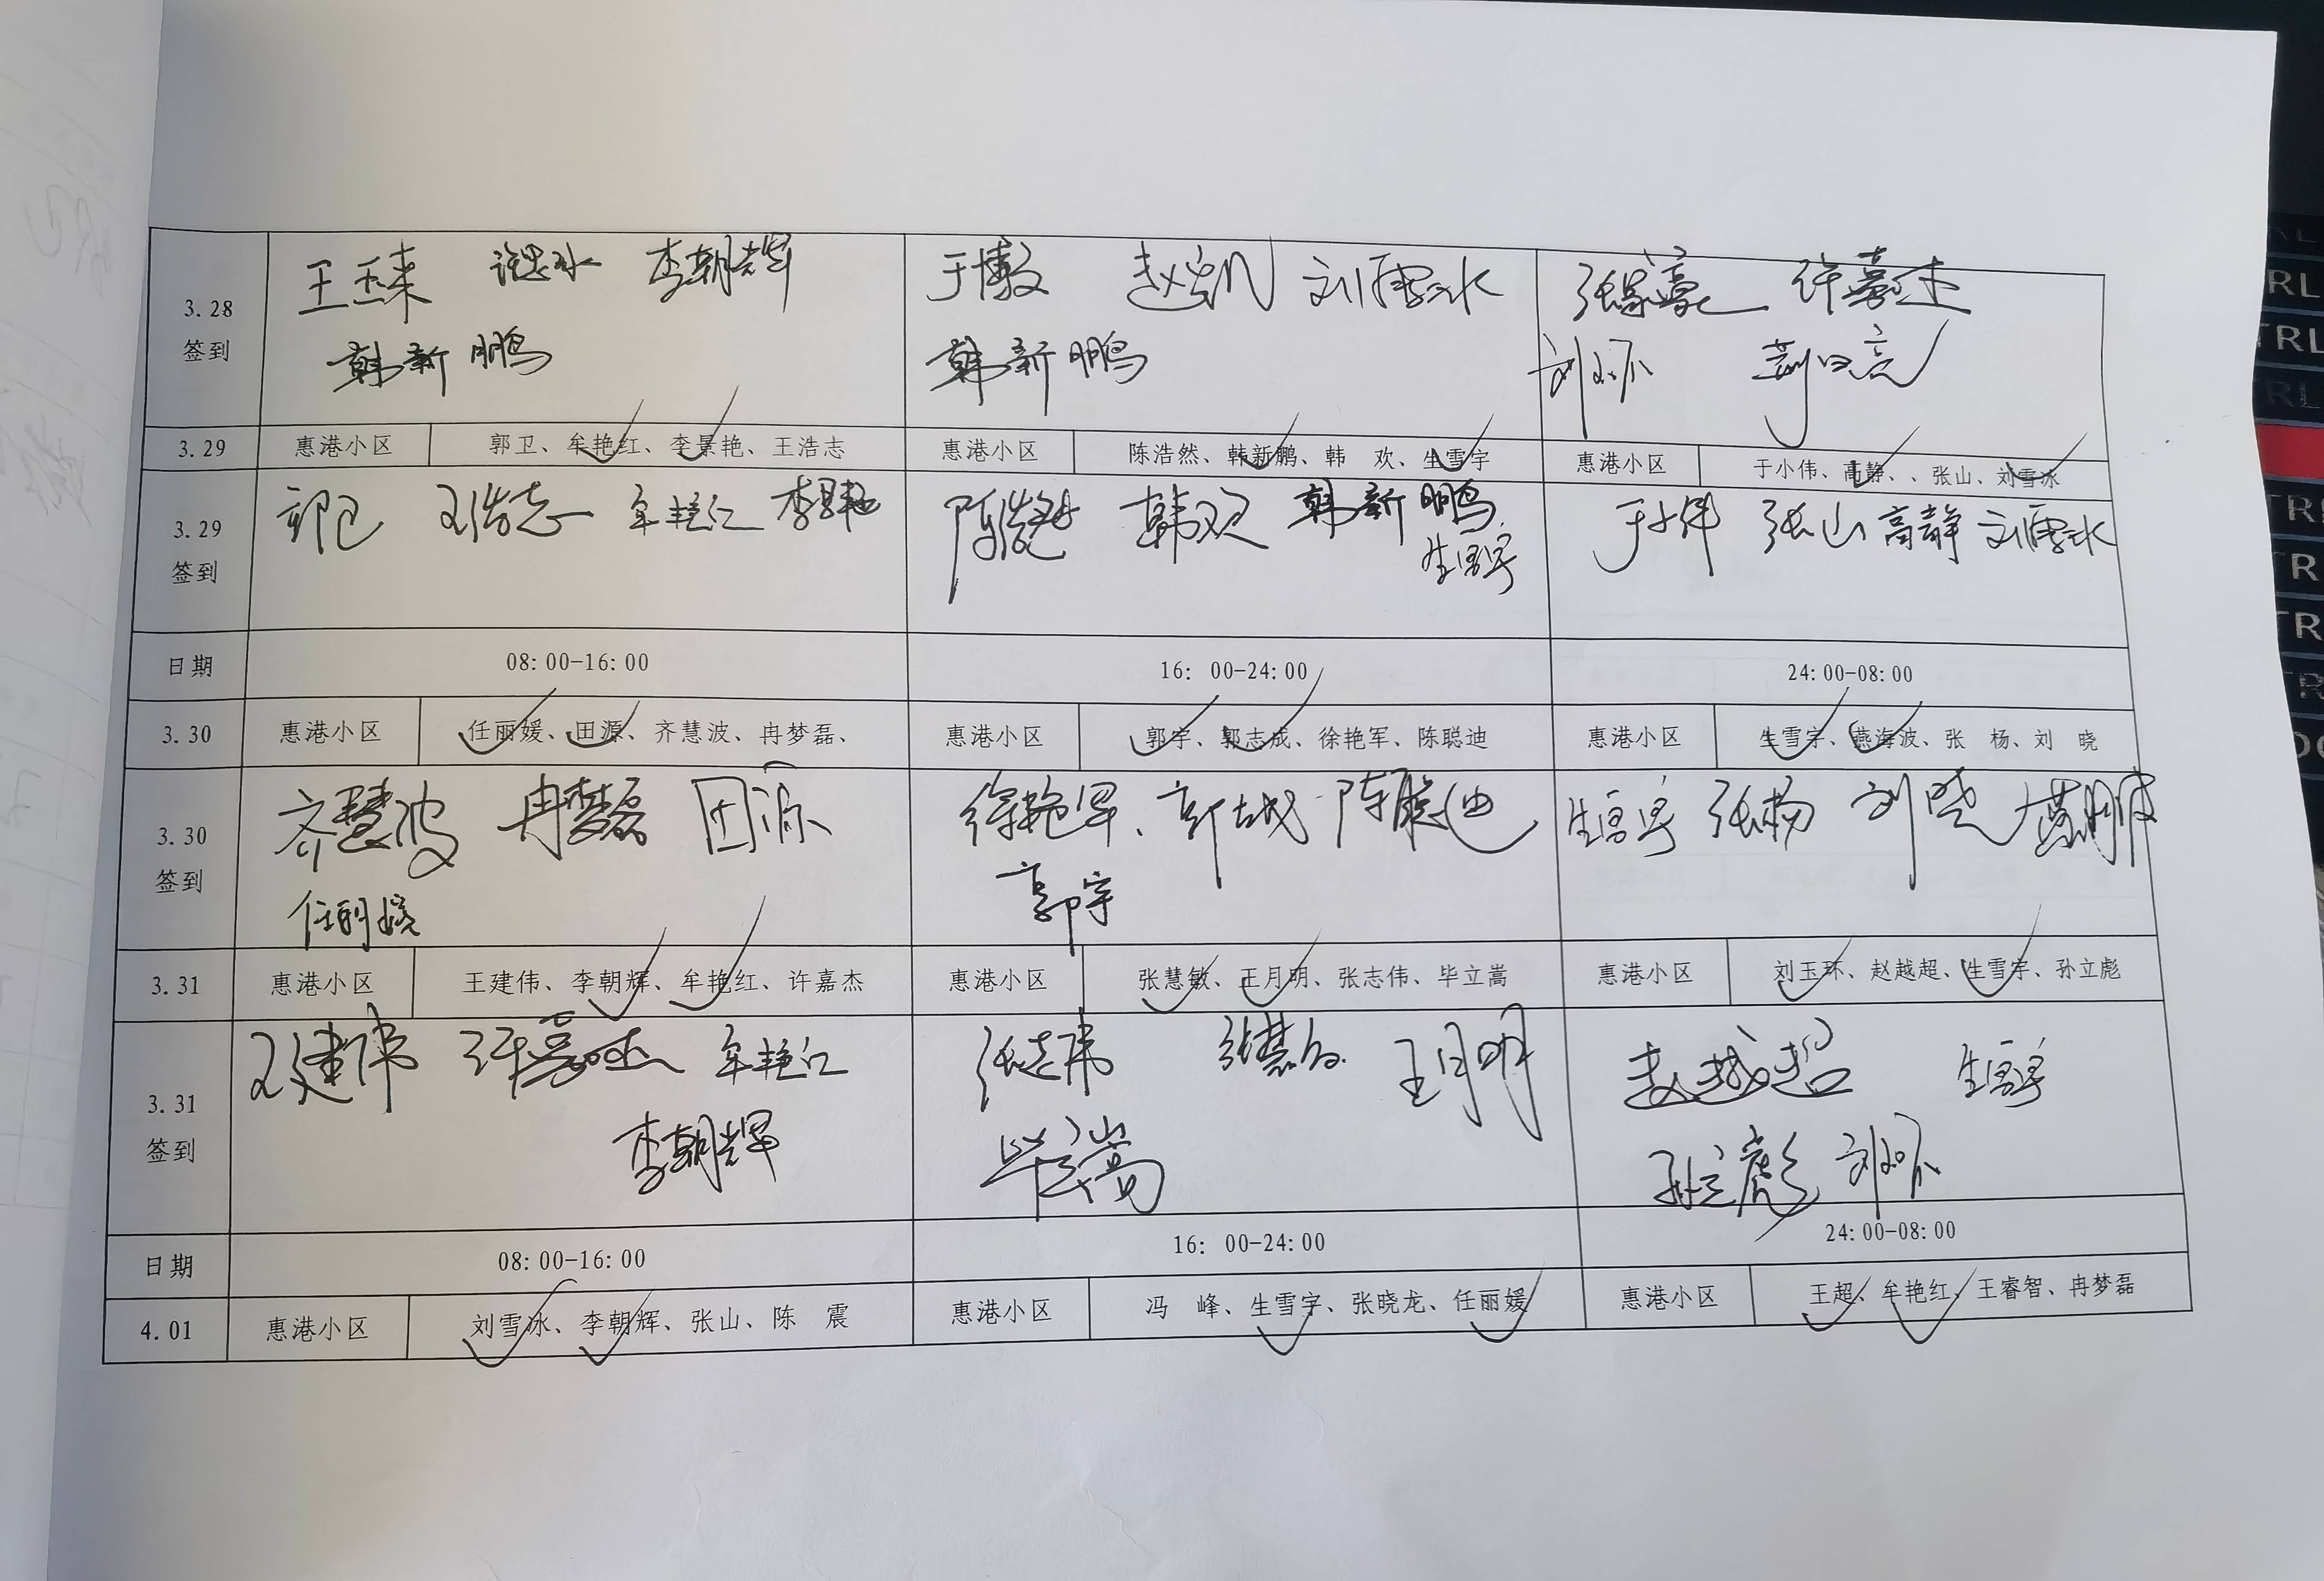 3.28 签到 李朝辉 于博 赵凯 刘雪冰 张豪 许嘉杰
韩新鹏 韩新鹏 刘玉环
3.29 惠港小区 郭卫、牟艳红、李景艳、王浩志 惠港小区 陈浩然、韩新鹏、韩 欢、生雪宇 惠港小区 于小伟、高静、、张山、刘雪冰
3.29 签到 郭卫 王浩志 牟艳红 李景艳 陈浩然 韩欢 韩新鹏 于小伟 张山 高静 刘雪冰
生雪宇
日期 08:00-16:00 16:00-24:00 24:00-08:00
3.30 惠港小区 任丽媛、田源、齐慧波、冉梦磊、 惠港小区 郭宇、郭志成、徐艳军、陈聪迪 惠港小区 生雪宇、燕海波、张 杨、刘 晓
3.30 签到 齐慧波 冉梦磊 田源 徐艳军、郭志成 陈聪迪 生雪宇 张杨 刘晓 燕海波
任丽媛 郭宇
3.31 惠港小区 王建伟、李朝辉、牟艳红、许嘉杰 惠港小区 张慧敏、王月明、张志伟、毕立嵩 惠港小区 刘玉环、赵越超、生雪宇、孙立彪
3.31 签到 王建伟 许嘉杰 牟艳红 张志伟 张慧敏 王月明 赵越超 生雪宇
李朝辉 毕立嵩 孙立彪 刘玉环
日期 08:00-16:00 16:00-24:00 24:00-08:00
4.01 惠港小区 刘雪冰、李朝辉、张山、陈 震 惠港小区 冯 峰、生雪宇、张晓龙、任丽媛 惠港小区 王超、牟艳红、王睿智、冉梦磊